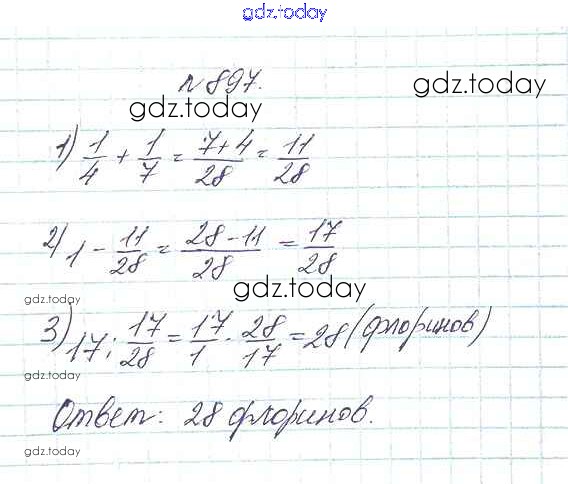 gdz.today
№ 897.
gdz.today
gdz.today
1) 1/4 + 1/7 = 7+4/28 = 11/28
2) 1 - 11/28 = 28-11/28 = 17/28
gdz.today
gdz.today
3) 17 : 17/28 = 17/1 · 28/17 = 28 (флоринов)
Ответ: 28 флоринов.
gdz.today
gdz.today